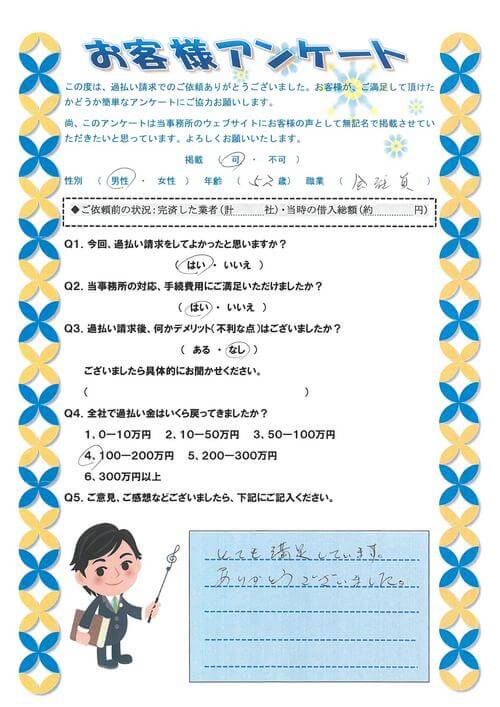 お客様アンケート
この度は、過払い請求でのご依頼ありがとうございました。お客様が、ご満足して頂けた
かどうか簡単なアンケートにご協力お願いします。
尚、このアンケートは当事務所のウェブサイトにお客様の声として無記名で掲載させてい
ただきたいと思っています。よろしくお願いいたします。
掲載 ( 可 ・ 不可 )
性別 ( 男性 ・ 女性 ) 年齢 ( 52歳) 職業 ( 会社員 )
◆ご依頼前の状況:完済した業者(計 社)・当時の借入総額(約 円)
Q1. 今回、過払い請求をしてよかったと思いますか?
( はい ・ いいえ )
Q2. 当事務所の対応、手続費用にご満足いただけましたか?
( はい ・ いいえ )
Q3. 過払い請求後、何かデメリット(不利な点)はございましたか?
( ある ・ なし )
ございましたら具体的にお聞かせください。
( )
Q4. 全社で過払い金はいくら戻ってきましたか?
1、0－10万円 2、10－50万円 3、50－100万円
4、100－200万円 5、200－300万円
6、300万円以上
Q5. ご意見、ご感想などございましたら、下記にご記入ください。
とても満足しています。
ありがとうございました。